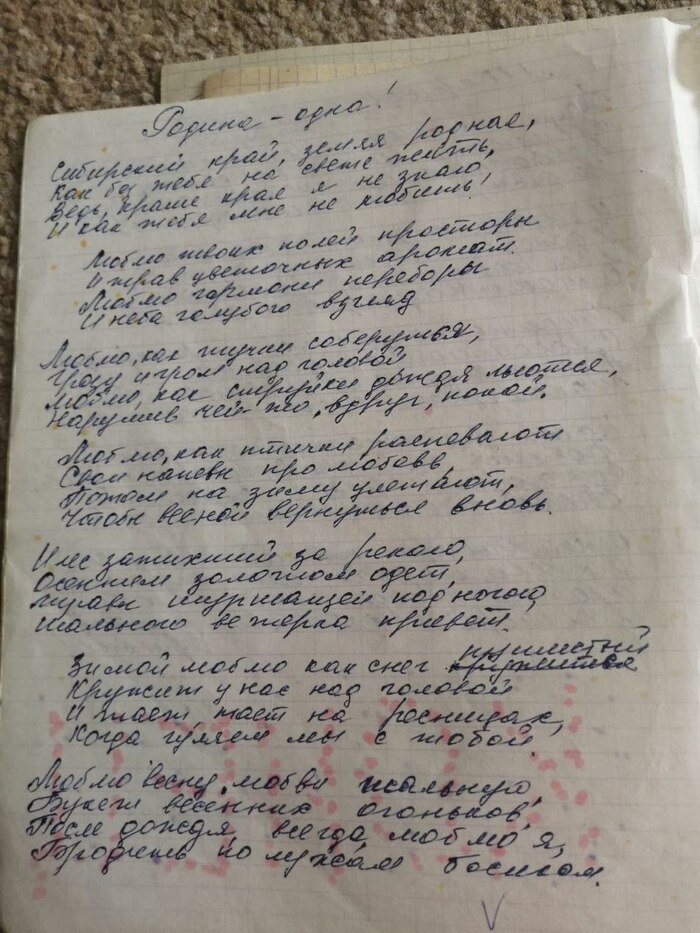 Родина - одна!
Сибирский край, земля родная,
Как без тебя на свете жить,
Ведь, краше края я не знаю,
И как тебя мне не любить!
Люблю твоих полей просторы
И трав цветочных аромат.
Люблю гармони переборы
И неба голубого взгляд
Люблю, как тучки соберутся,
Грозу и гром над головой
Люблю, как струйки дождя льются,
Нарушив чей-то, вдруг, покой.
Люблю, как птички распевают
Свои напевы про любовь,
Потом на зиму улетают,
Чтобы весной вернуться вновь.
И лес затихший за рекою,
Осенним золотом одет,
Травы шуршащей под ногою,
Шального ветерка привет.
Зимой люблю как снег пушистый
Кружит у нас над головой
И тает, тает на ресницах,
Когда гуляем мы с тобой.
Люблю весну, любви шальную,
Букет весенних огоньков,
После дождя, всегда, люблю я,
Бродить по лужам босиком.